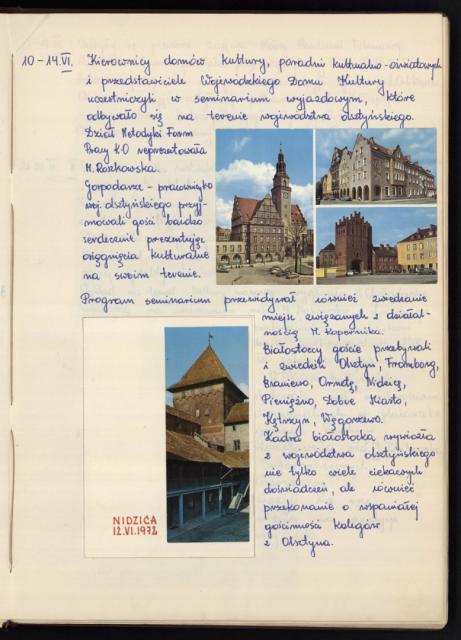 10-14.VI. Kierownicy domów kultury, poradni kulturalno-oświatowych
i przedstawiciele Wojewódzkiego Domu Kultury
uczestniczyli w seminarium wyjazdowym, które
odbywało się na terenie województwa olsztyńskiego.
Dział Metodyki Form
Pracy K-O reprezentowała
H. Rozkowska.
Gospodarze - pracownicy
woj. olsztyńskiego przyj-
mowali gości bardzo
serdecznie prezentując
osiągnięcia kulturalne
na swoim terenie.
Program seminarium przewidywał również zwiedzanie
miejsc związanych z działal-
nością M. Kopernika.
Białostoccy goście przebywali
i zwiedzili Olsztyn, Frombork,
Braniewo, Ornetę, Nidzicę,
Pieniężno, Dobre Miasto,
Kętrzyn, Węgorzewo.
Kadra białostocka wywiozła
z województwa olsztyńskiego
nie tylko wiele ciekawych
doświadczeń, ale również
przekonanie o wspaniałej
gościnności kolegów
z Olsztyna.
NIDZICA
12.VI.1972